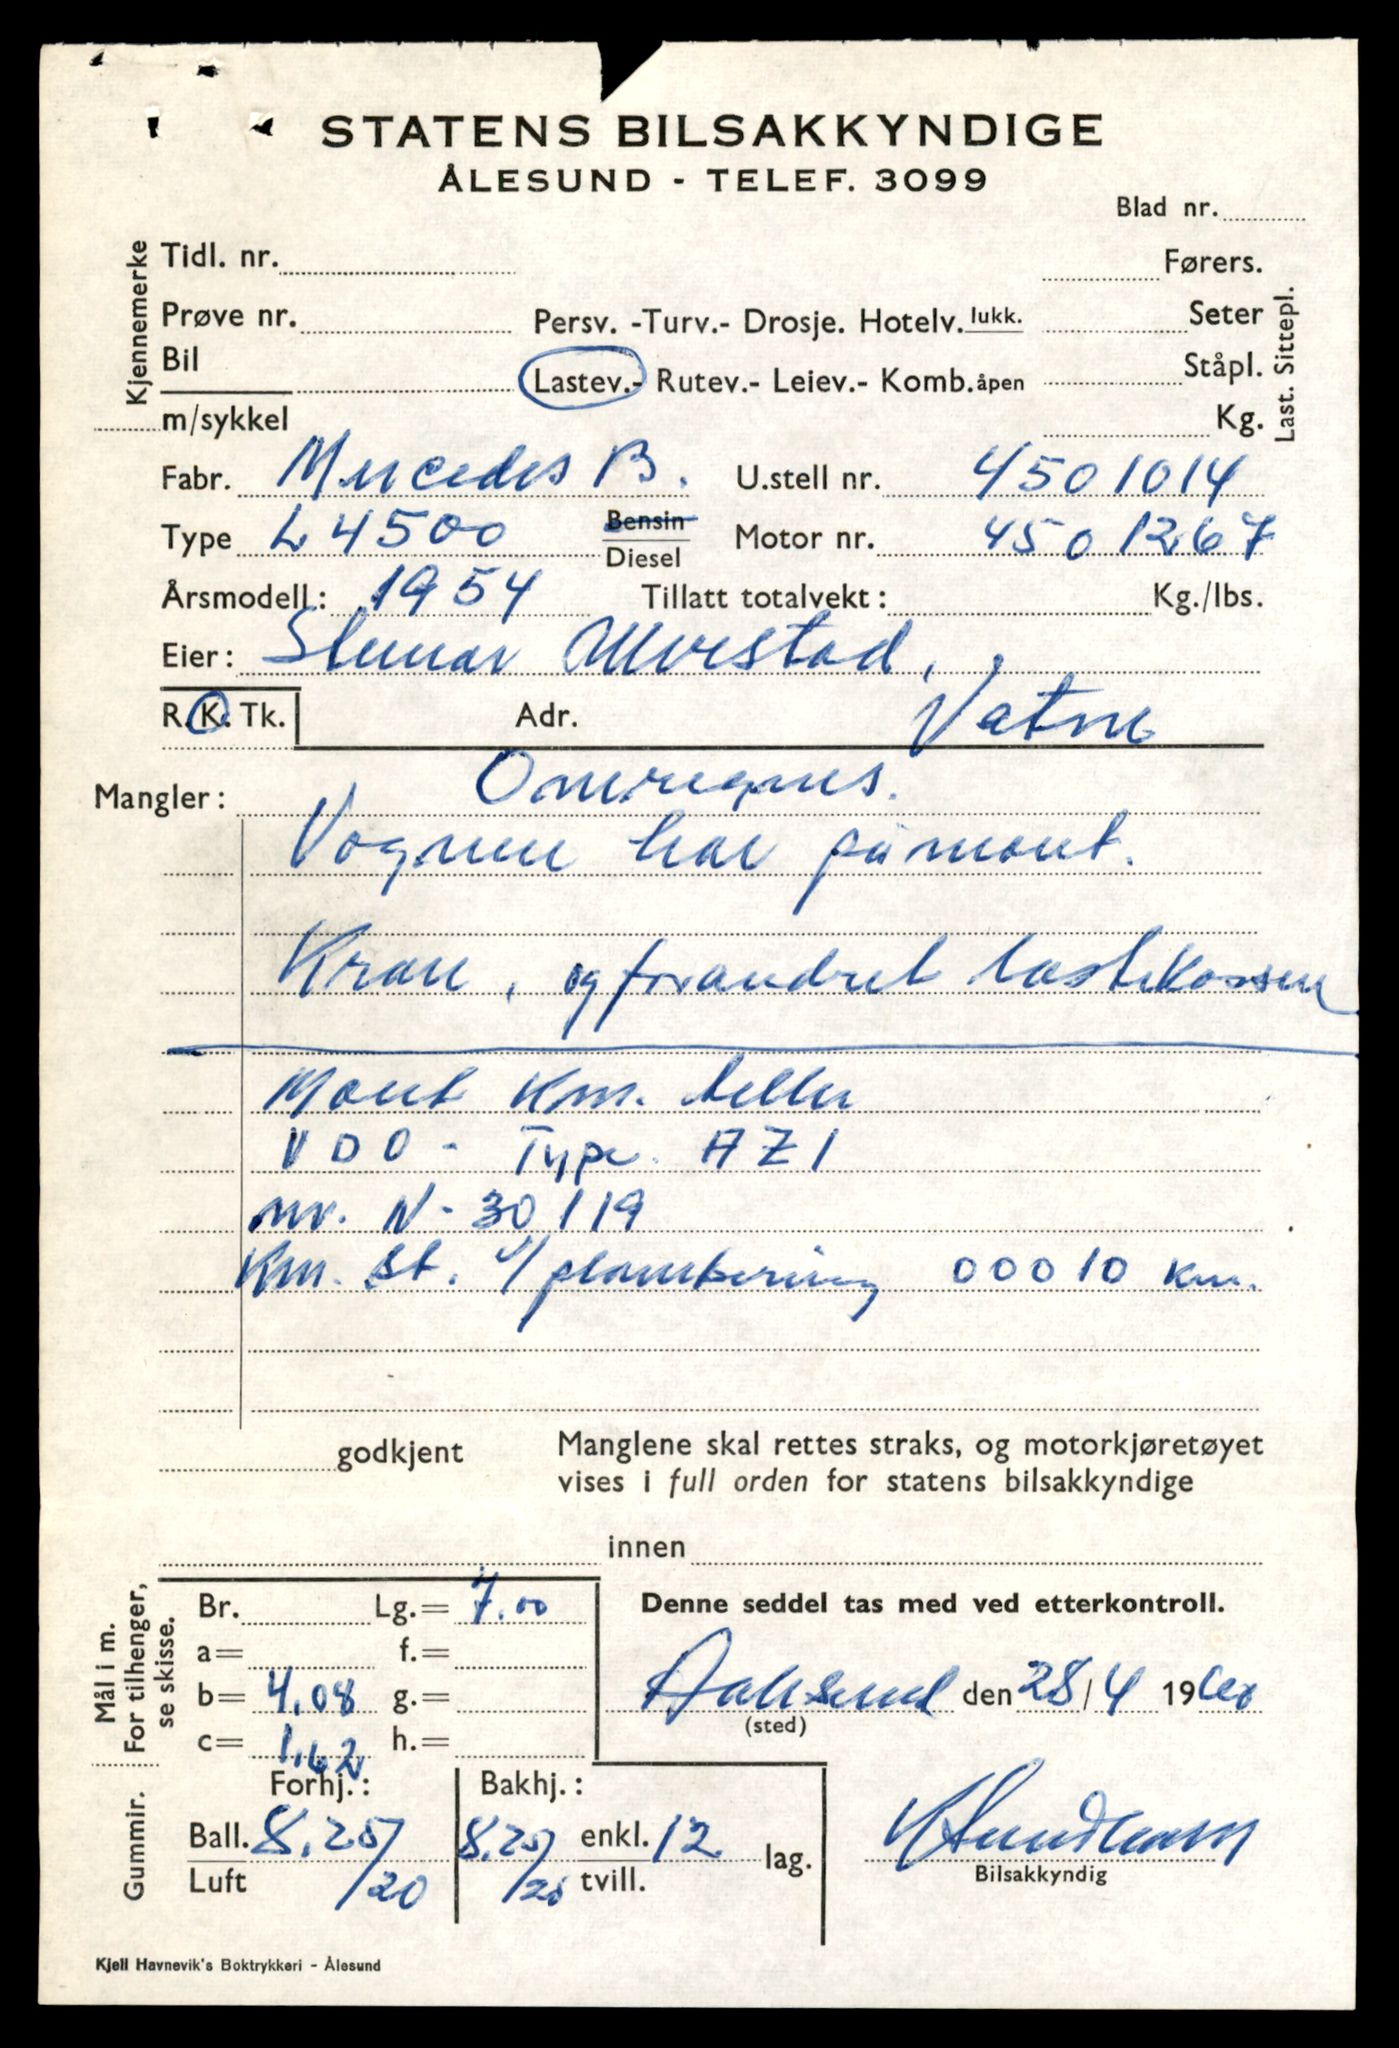 STATENS BILSAKKYNDIGE
ÅLESUND - TELEF. 3099
Blad nr.
Kjennemerke
Tidl. nr.
Førers.
Prøve nr.
Persv. -Turv.- Drosje. Hotelv. lukk.
Seter
Bil
Lastev.- Rutev.- Leiev.- Komb. åpen
Ståpl.
m/sykkel
Kg.
Last. Sittepl.
Fabr. Mercedes B. U.stell nr. 4501014
Type L 4500 Bensin Diesel Motor nr. 4501267
Årsmodell: 1954 Tillatt totalvekt: Kg./lbs.
Eier: Steinar Ulvestad,
R. K. Tk. Adr. Vatne
Mangler: Omregns.
Vognen har påmont.
Kran, og forandret lastekassen
Mont Km. teller
VDO - Type AZ1
nr. N - 30119
Km. st. v/plombering 00010 km.
godkjent Manglene skal rettes straks, og motorkjøretøyet
vises i full orden for statens bilsakkyndige
innen
Mål i m.
For tilhenger,
se skisse.
Br. Lg.= 7.00
Denne seddel tas med ved etterkontroll.
a= f.=
b= 4.08 g.=
den 28/4 1960
(sted)
c= 1.62 h.=
Gummir.
Forhj.: Bakhj.:
Ball. 8.25/20 8.25/20 enkl. 12 lag.
Luft tvill.
Bilsakkyndig
Kjell Havnevik's Boktrykkeri - Ålesund